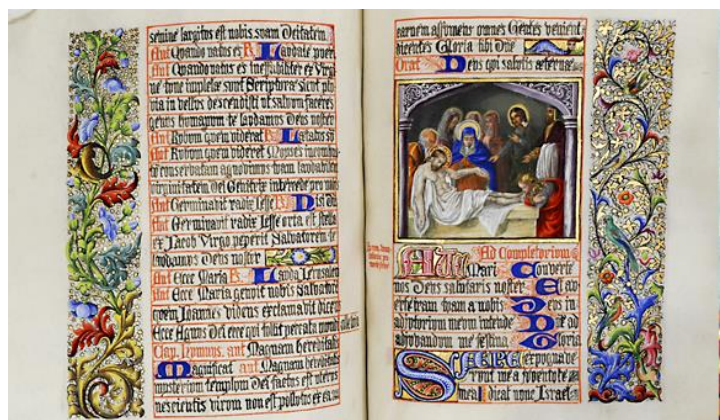 semine largitus est nobis suam Deitatem
Ant Quando natus es R Laudate pueri
Ant Quando natus es ineffabiliter ex Virgi
ne tunc impletae sunt Scripturae sicut plu
via in vellus descendisti ut salvum faceres
genus humanum te laudamus Deus noster
Ant Rubum quem viderat R Laetatus su
Ant Rubum quem viderat Moyses incombu
tuam laudabile
virginitatem Dei Genitrix intercede pro nobis
Ant Germinavit radix Jesse R Nisi Dni
Ant Germinavit radix Jesse orta est stella
ex Jacob Virgo peperit Salvatorem te
laudamus Deus noster
Ant Ecce Maria R Lauda Jerusalem
Ant Ecce Maria genuit nobis Salvatore
quem Joannes videns exclamavit dicens
Ecce Agnus Dei ecce qui tollit peccata mundi alleluia
Cap. Hymnus, ant Magnum hereditatis
Magnificat ant Magnum hereditatis
mysterium templum Dei factus est uterus
nescientis virum non est pollutus ex ea
carnem assumens omnes Gentes venient
dicentes Gloria tibi Dne
Orat Deus qui salutis aeternae
Ad Completorium
Mari Converte
nos Deus salutaris noster Et av
erte iram tuam a nobis Deus in
adjutorium meum intende Dne ad
adjuvandum me festina Gloria
Saepe expugnave
runt me a juventute
mea dicat nunc Israel